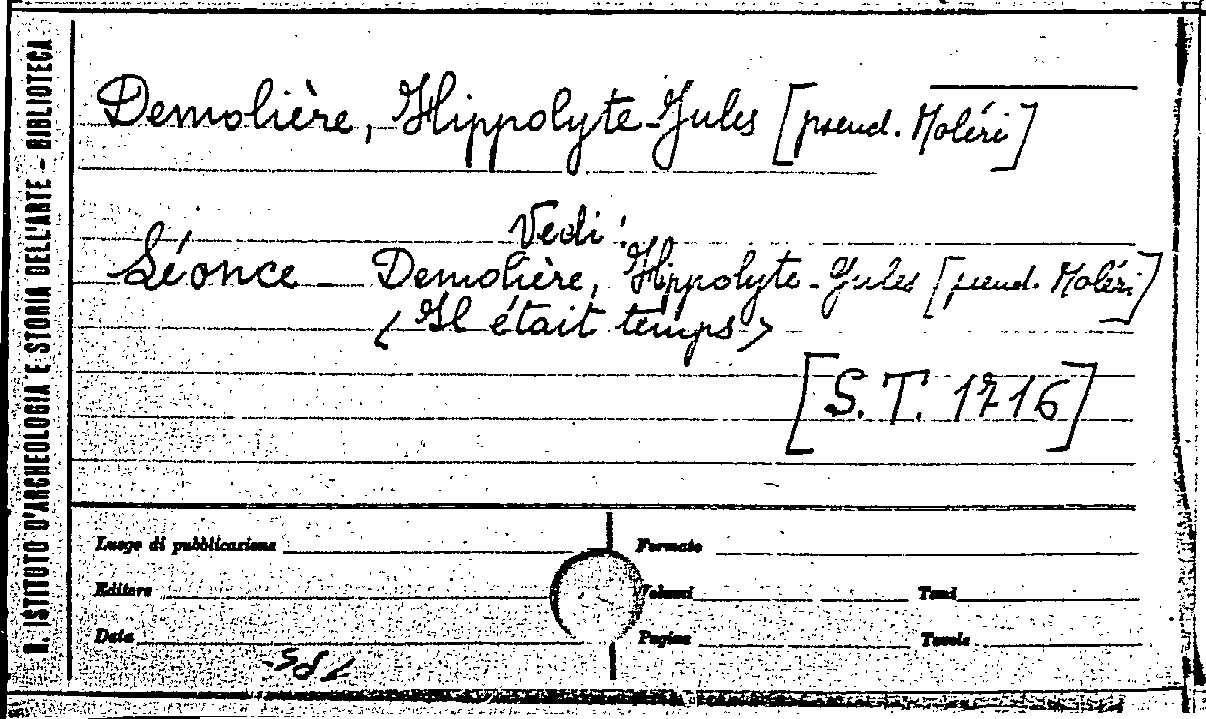 R. ISTITUTO D'ARCHEOLOGIA E STORIA DELL'ARTE - BIBLIOTECA
Demolière, Hippolyte-Jules [pseud. Moléri]
Vedi:
Séonce - Demolière, Hippolyte-Jules [pseud. Moléri]
< Il était temps >
[S. T. 1716]
Luogo di pubblicazione
Formato
Editore
Volumi
Tomi
Data
Pagine
Tavole